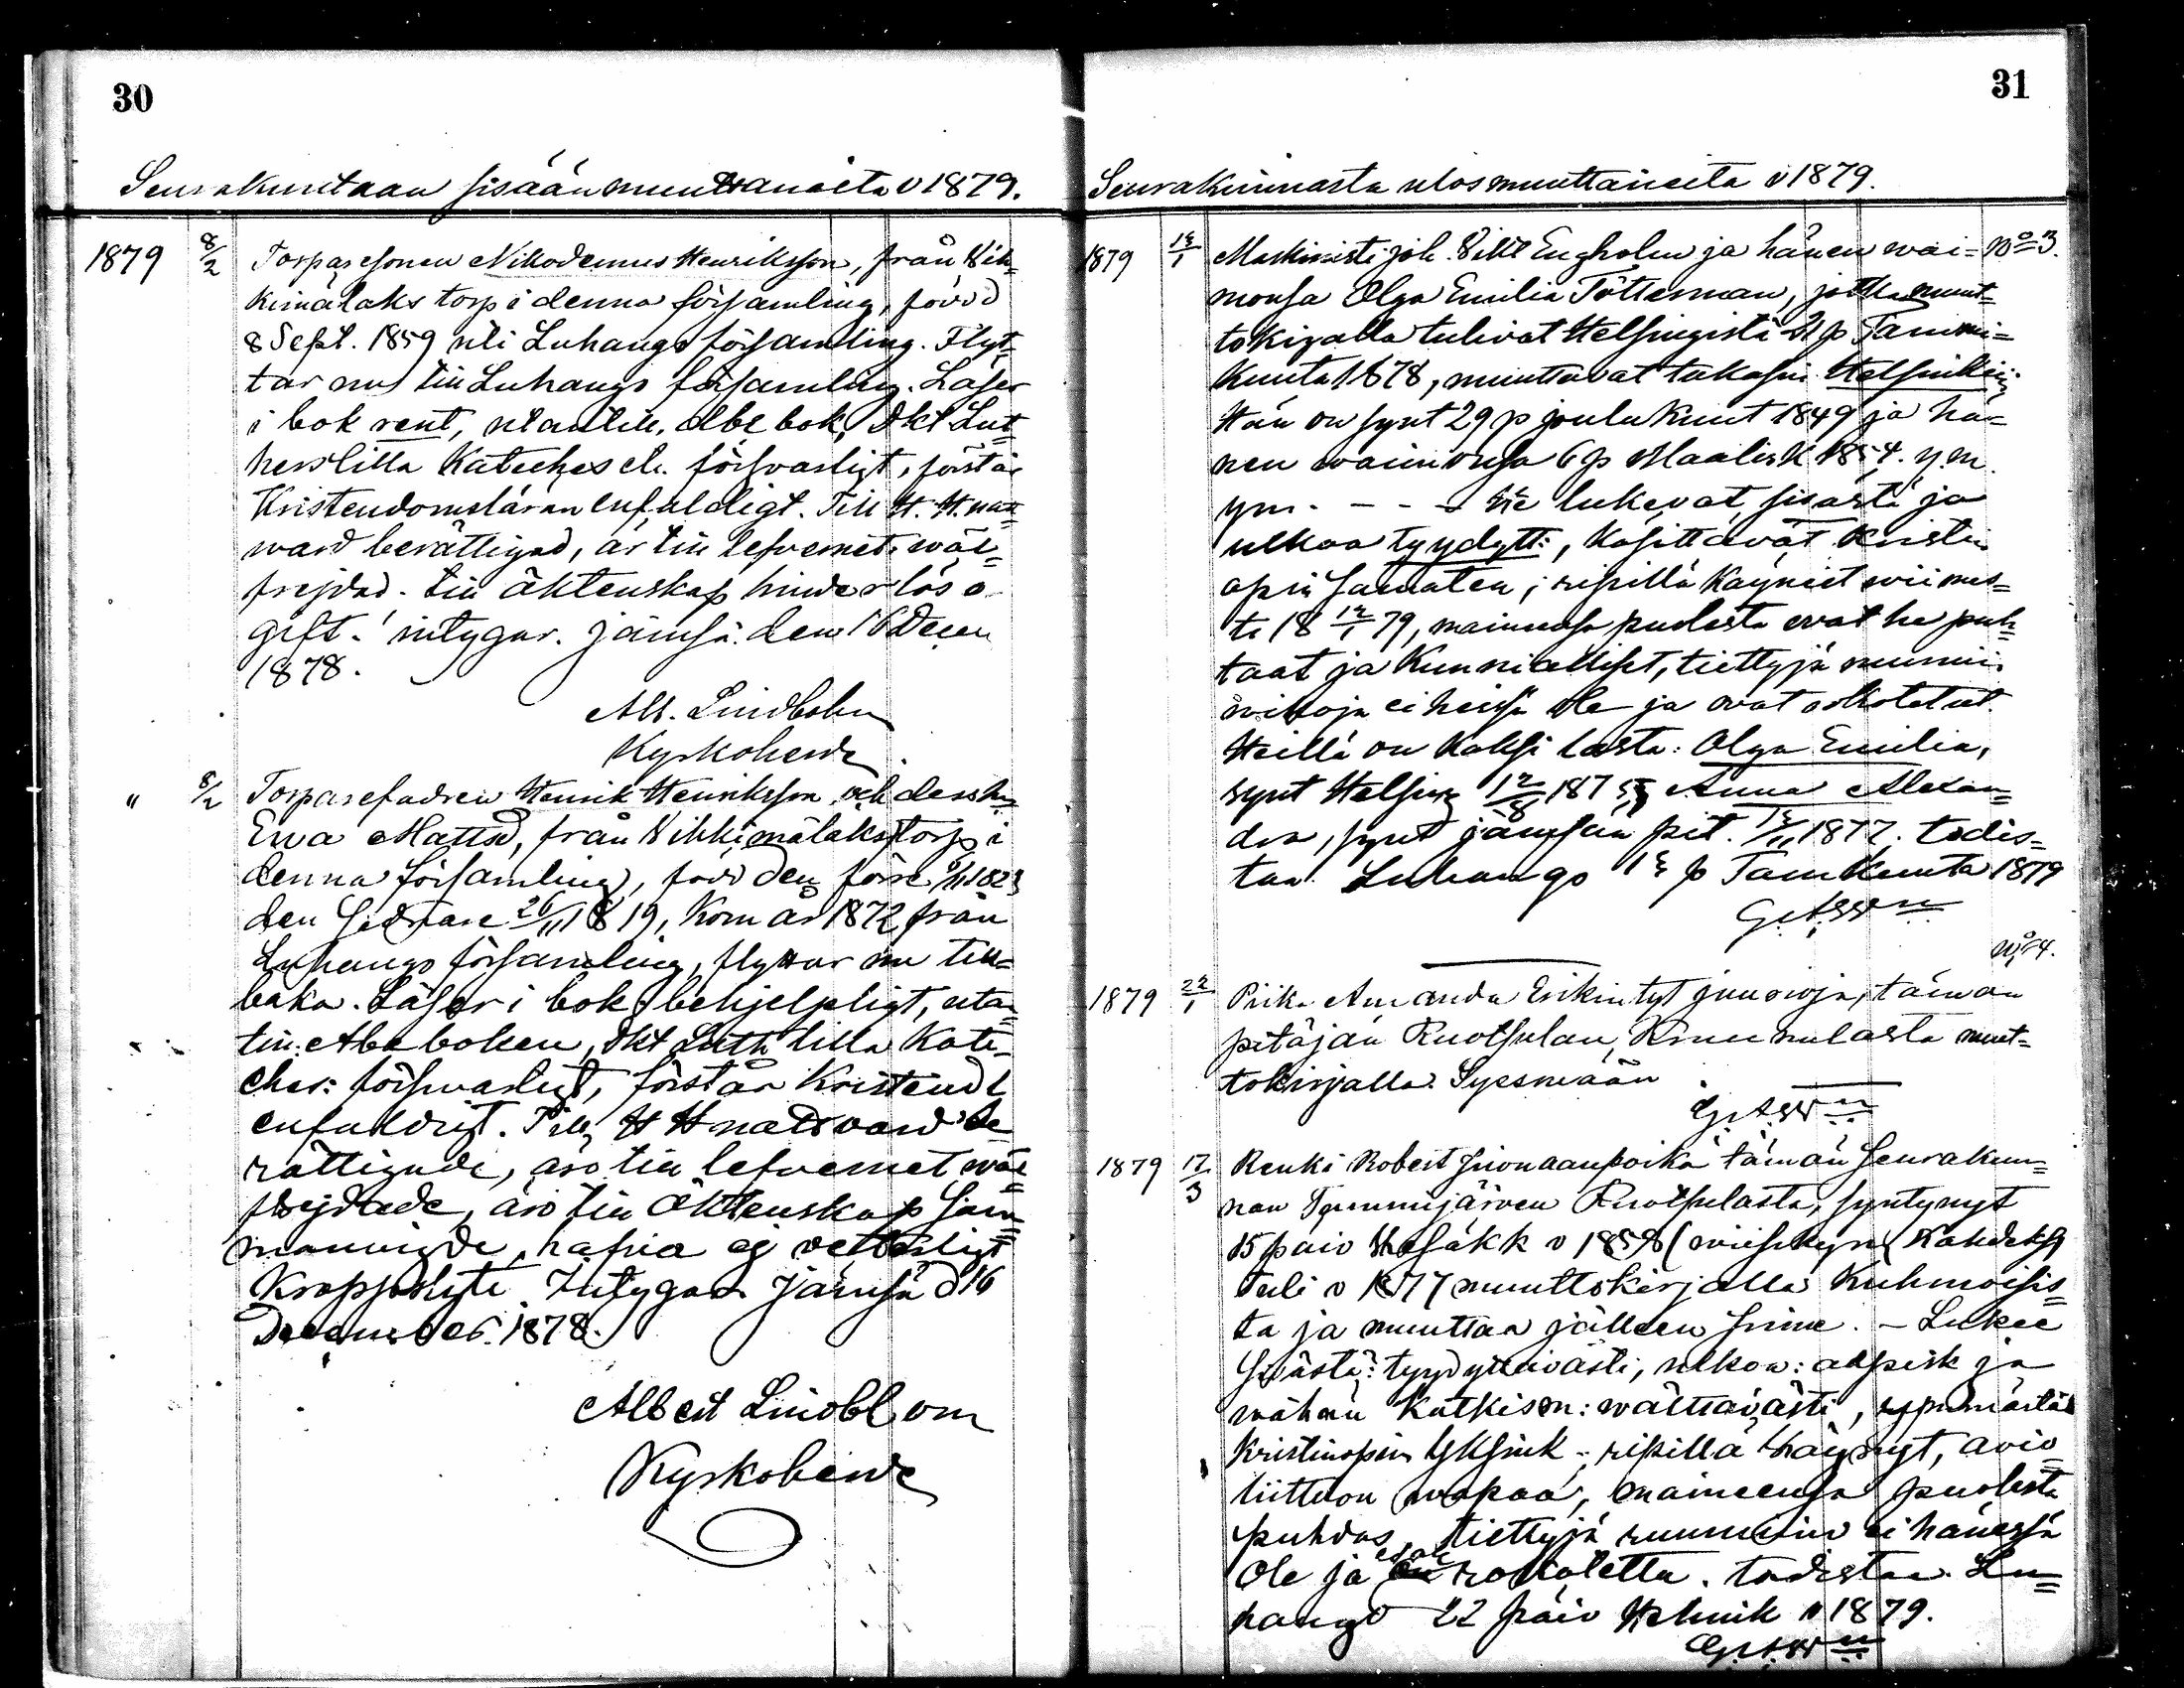 30
Seurakuntaan sisäänmuuttaneita v 1879.
1879 8/2 Torparesonen Nikodemus Henriksson, från Vih-
kimälaks torp i denna församling, född
8 Sept. 1859 uti Luhango församling. Flyt-
tar nu till Luhango församling. Läser
i bok rent, utantill. Abc bok, Dkt Lut-
hers lilla Kateches etc. försvarligt, förstår
Kristendomsläran enfaldigt. Till H. H. natt-
ward berättigad, är till lefvernet wäl-
frejdad. till äktenskap hinderlös o
gift. intygar. Jämsä den 16 Decem
1878.
Alb. Lindblom
Kyrkoherde
" 8/2 Torparefadren Henrik Henriksson och dess hu
Ewa Mattsd, från Vihkimälaks torp i
denna församling, född den förre 1823
den sednare 26/11 1819, Kom år 1872 från
Luhango församling, flyttar nu till-
baka. Läser i bok behjelpligt, utan-
till: Abc boken, Dkt Luth lilla Kate-
ches: försvarligt, förstår Kristendl
enfaldigt. Till H H nattvard be-
rättigade, äro till lefvernet wäl-
frejdade, äro till Äktenskap sam-
manvigde, hafva ej vetterligt
Kroppslyte. Intygar Jämsä d 16
December 1878.
Albert Lindblom
Kyrkoherde
31
Seurakunnasta ulosmuuttaneita v 1879.
1879 Maskinisti Joh. Vilh Engholm ja hänen wai- No 3.
monsa Olga Emilia Tötterman, jotka muut-
tokirjalla tulivat Helsingistä 21 p Tammi-
kuuta 1878, muuttavat takasin Helsinkiin
Hän on synt 29 p joulukuut 1849 ja hä-
nen waimonsa 6 p Maalisk 1854. y.m.
ym. - - - He lukevat, sisästä ja
ulkoa tyydytt:, käsittävät kristin
opin samaten; ripillä käyneet wiimes-
te 18 12/1 79, mainensa puolesta ovat he puh-
taat ja Kunnialliset, tiettyjä ruumiin
wikoja ei heissä ole ja ovat rokotetut.
Heillä on kaksi lasta: Olga Emilia,
synt Helsing 12/8 187 Anna Alexan-
dra, synt Jämsän pit. 1877. todis-
taa. Luhango p Tamkuuta 1879
No 4.
1879 22/1 Piika Amanda Erikintyt Juusoja, tämän
pitäjän Ruotsulan, muut-
tokirjalla Sysmään
1879 17/3 Renki Robert Juonaanpoika tämän seurakun-
nan Tammijärven Ruotsulasta, syntynyt
15 päiv Kesäkk v 1858 (wiisikym kahdeks)
tuli v 1877 muuttokirjalla Kuhmoisis-
ta ja muuttaa jälleen sinne. - Lukee
sisästä: tyydyttävästi, ulkoa: aapisk ja
wähän Katkism: wälttävästi, ymmärtää
Kristinopin yksink -; ripillä käynyt, avio
liittoon wapaa, maineensa puolesta
puhdas, tiettyjä ruumiin ei hänessä
ole ja ei ole rokotettu. todistaa. Lu-
hango 22 päiv Helmik v 1879.